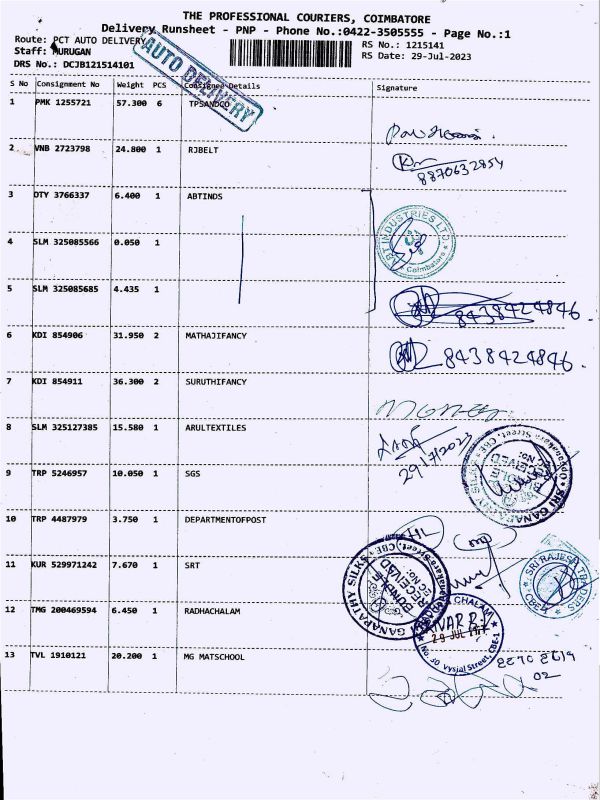 THE PROFESSIONAL COURIERS, COIMBATORE
Delivery Runsheet - PNP - Phone No.:0422-3505555 - Page No.:1
Route: PCT AUTO DELIVERY
RS No.: 1215141
Staff: MURUGAN
RS Date: 29-Jul-2023
DRS No.: DCJB121514101
AUTO DELIVERY
S No Consignment No Weight PCS Consignee Details Signature
1 PMK 1255721 57.300 6 TPSANDCO
2 VNB 2723798 24.800 1 RJBELT
8870632854
3 DTY 3766337 6.400 1 ABTINDS
ABT INDUSTRIES LTD. Coimbatore
4 SLM 325085566 0.050 1
5 SLM 325085685 4.435 1
8438424846
6 KDI 854906 31.950 2 MATHAJIFANCY
8438424846
7 KDI 854911 36.300 2 SURUTHIFANCY
8 SLM 325127385 15.580 1 ARULTEXTILES
29/7/2023
SRI GANAPATHY SILKS RECEIVED
9 TRP 5246957 10.050 1 SGS
10 TRP 4487979 3.750 1 DEPARTMENTOFPOST
11 KUR 529971242 7.670 1 SRT
GANAPATHY SILKS RECEIVED BUNDLE
SRI RAJESH TRADERS
12 TMG 200469594 6.450 1 RADHACHALAM
CHALAM
29 JUL
No. 30 Vysial Street, CBE-1
13 TVL 1910121 20.200 1 MG MATSCHOOL
02